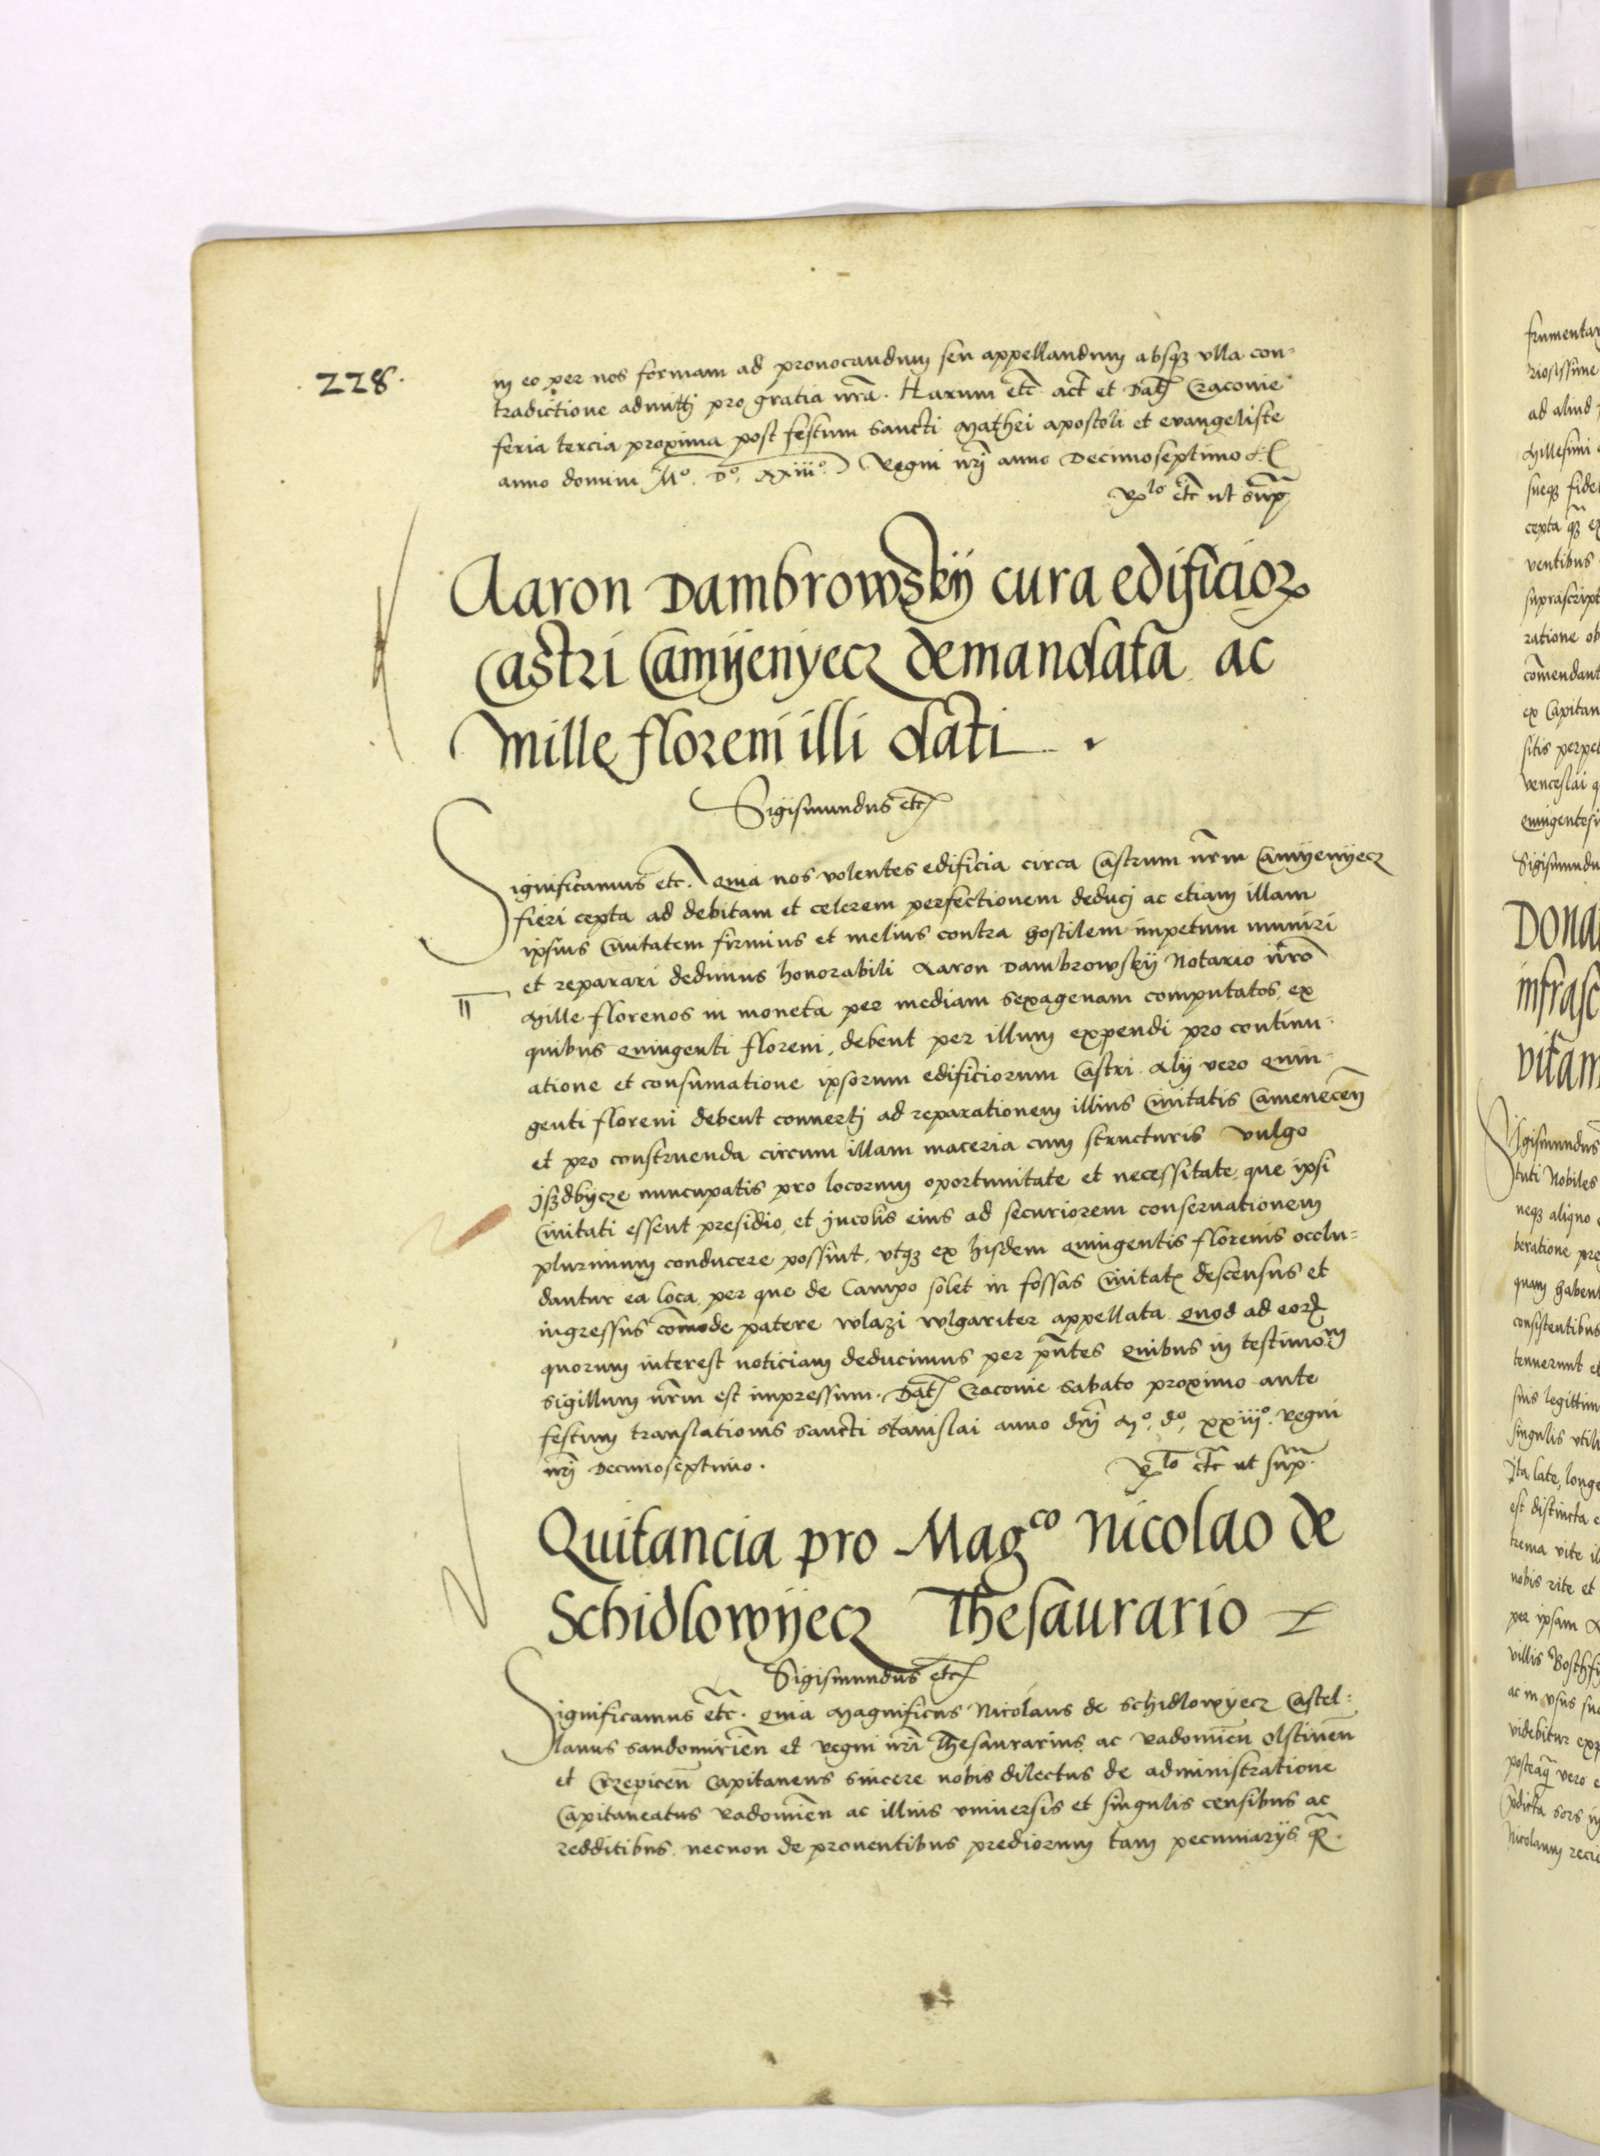 228.
in eo per nos formam ad prouocandum seu appellandum absqz vlla con-
tradictione admitti pro gratia nra. Harum etc act et Dat Cracouie
feria tercia proxima post festum sancti Mathei apostoli et evangeliste
anno domini Mo. Do. xxiiio. Regni nri anno Decimoseptimo
Rlo etc ut supra
Aaron Dambrowskij cura edificior
castri Camijenyecz demandata ac
mille floreni illi dati.
Sigismundus etc
Significamus etc. Quia nos volentes edificia circa Castrum nrm Camijenyecz
fieri cepta ad debitam et celerem perfectionem deduci ac etiam illam
ipsius Ciuitatem firmius et melius contra hostilem impetum muniri
et reparari dedimus honorabili Aaron Dambrowskij Notario nro
Mille florenos in moneta per mediam sexagenam computatos, ex
quibus Quingenti floreni, debent per illum expendi pro continu-
atione et consumatione ipsorum edificiorum Castri. Alij vero quin-
genti floreni debent conuerti ad reparationem illius Ciuitatis Camenecen
et pro construenda circum illam maceria cum structuris vulgo
jszdbycze nuncupatis pro locorum oportunitate et necessitate, que ipsi
Ciuitati essent presidio, et jncolis eius ad securiorem conseruationem
plurimum conducere possint, vtqz ex hisdem Quingentis florenis occlu-
dantur ea loca, per que de Campo solet in fossas Ciuitat descensus et
ingressus comode patere wlazi wlgariter appellata. Quod ad eor
quorum interest noticiam deducimus per pntes Quibus in testimom
sigillum nrm est impressum. Dat Cracouie sabato proximo ante
festum translationis sancti stanislai anno dni Mo. do. xxiiio. Regni
nri Decimoseptimo.
Rlo etc ut supra.
Quitancia pro Magco Nicolao de
Schidlowijecz Thesaurario
Sigismundus etc
Significamus etc. Quia Magnificus Nicolaus de Schidlowyecz Castel-
lanus sandomirien et Regni nri Thesaurarius, ac Radomien Olstinen
et Crzepicen Capitaneus sincere nobis dilectus de administratione
Capitaneatus Radomien ac illius vniuersis et singulis censibus ac
redditibus, necnon de prouentibus prediorum tam pecuniarijs